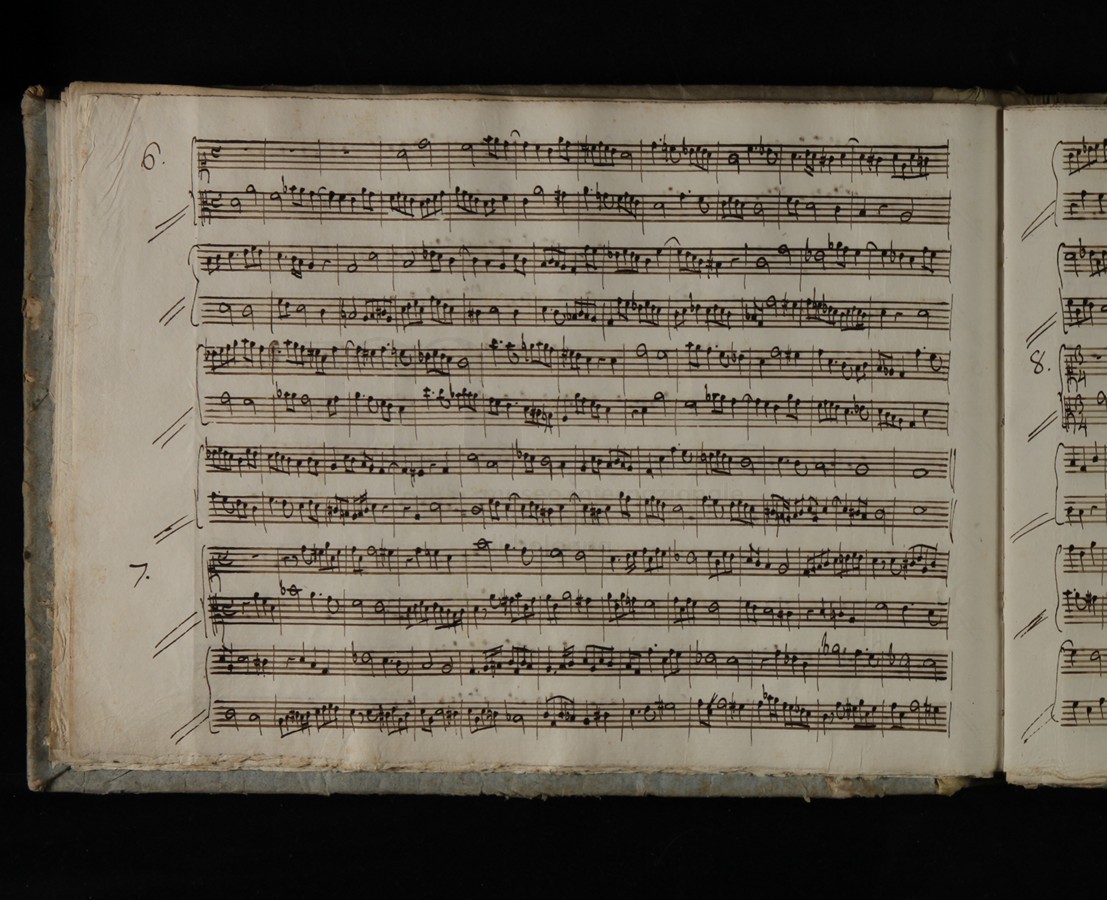 6.
7.
8.